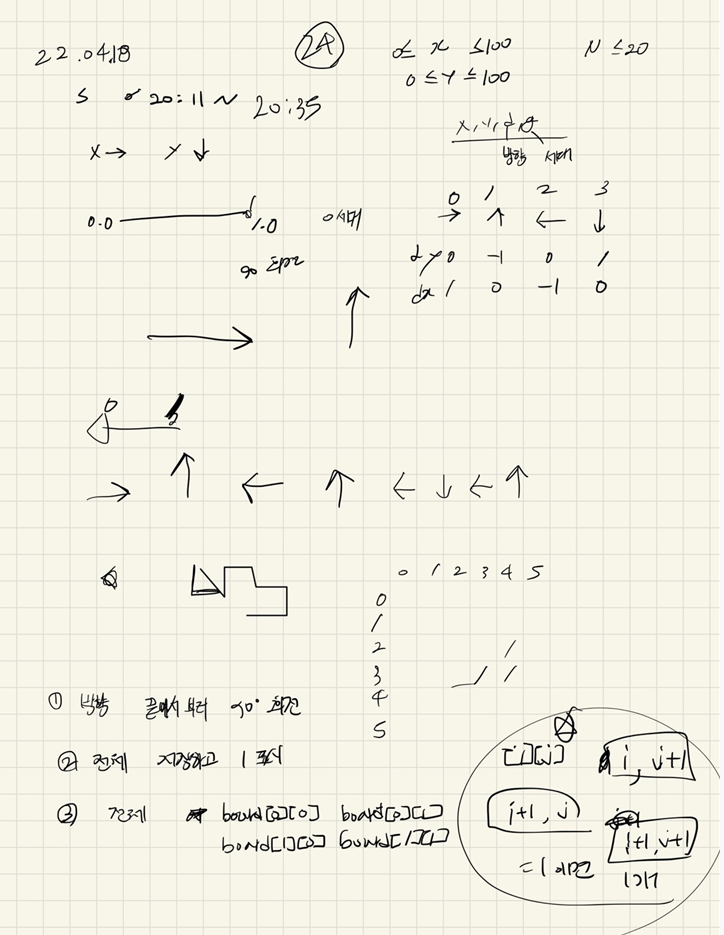 22.04.18
24
0≤ x ≤100
N ≤20
0 ≤ Y ≤100
20:11 ~ 20:35
X→ Y↓
x, y, d, g
방향 세대
0 1 2 3
→ ↑ ← ↓
0.0 1.0 0세대
dy 0 -1 0 1
90
dx 1 0 -1 0
↑
→
0
←
→ ↑ ← ↑ ← ↓ ← ↑
0 1 2 3 4 5
0
1
2 1
3 1 1
4
5
① 방향 끝에서부터 90° 회전
② 전체 저장하고 1 표시
③ board[0][0] board[0][1]
board[1][0] board[1][1]
[i][j] i, j+1
i+1, j i+1, j+1
=1 이면